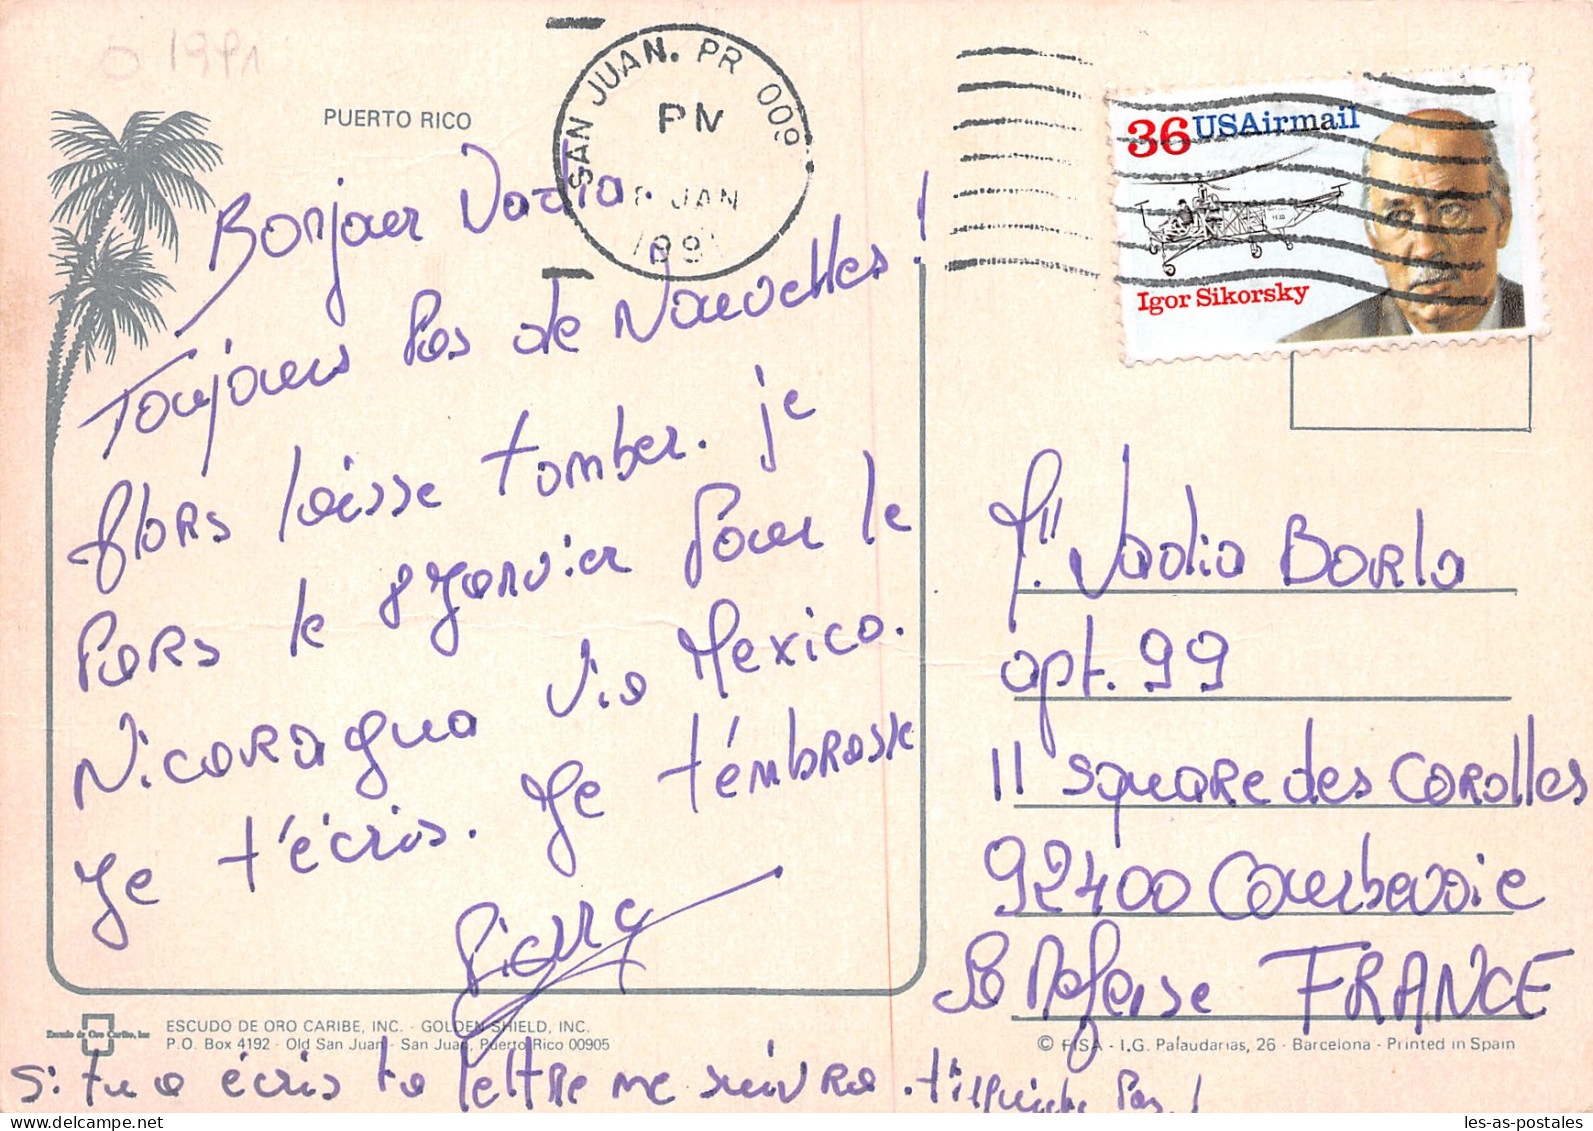 O 1991
PUERTO RICO
SAN JUAN. PR 009
PM
8 JAN
1991
36 USAirmail
Igor Sikorsky
Bonjour Nadia.
Toujours Pas de Nouvelles !
Alors laisse tomber. je
Pars le 8 Janvier Pour le
Nicaragua Via Mexico.
Je t'écris. Je t'embrasse
Pierre
Nadia Borla
apt. 99
11 square des Corolles
92400 Courbevoie
La Defense FRANCE
Escudo de Oro Caribe, Inc
ESCUDO DE ORO CARIBE, INC. - GOLDEN SHIELD, INC.
P.O. Box 4192 - Old San Juan - San Juan, Puerto Rico 00905
© FISA - I.G. Palaudarias, 26 - Barcelona - Printed in Spain
Si tu a écris ta lettre me suivra . t'inquiète Pas !
les-as-postales.com